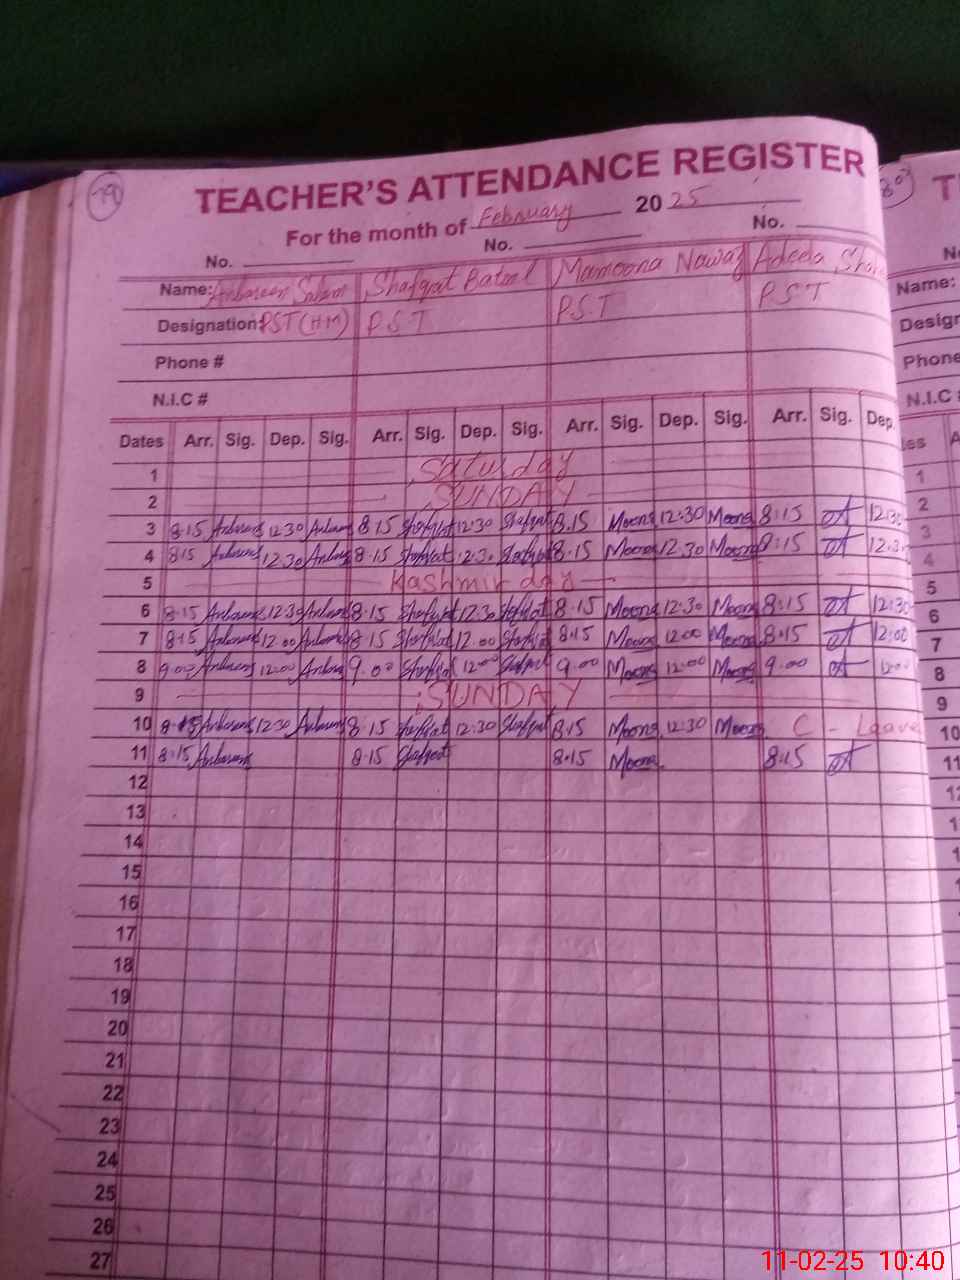 79
TEACHER'S ATTENDANCE REGISTER
For the month of February 2025
No. No. No.
Name: Shafqat Batool Mamoona Nawaz Adeela
Designation: PST (HM) P.S.T P.S.T P.S.T
Phone #
N.I.C #
Dates Arr. Sig. Dep. Sig. Arr. Sig. Dep. Sig. Arr. Sig. Dep. Sig. Arr. Sig. Dep.
1 Saturday
2 SUNDAY
3 8.15 12.30 8.15 Shafqat 12.30 Shafqat 8.15 Moona 12:30 Moona 8:15 12:30
4 8.15 12.30 8.15 Shafqat 12.30 Shafqat 8.15 Moona 12.30 Moona 8:15 12.3
5 Kashmir day
6 8.15 12.30 8.15 Shafqat 12.30 Shafqat 8.15 Moona 12.30 Moona 8:15 12:30
7 8.15 12.00 8.15 Shafqat 12.00 Shafqat 8.15 Moona 12.00 Moona 8:15 12:00
8 9.00 12.00 9.00 Shafqat 12.00 Shafqat 9.00 Moona 12.00 Moona 9.00 12.00
9 SUNDAY
10 8.15 12.30 8.15 Shafqat 12.30 Shafqat 8.15 Moona 12.30 Moona C - Leave
11 8.15 8.15 Shafqat 8.15 Moona 8:15
12
13
14
15
16
17
18
19
20
21
22
23
24
25
26
27
80
T
Name:
Design
Phone
N.I.C #
1
2
3
4
5
6
7
8
9
10
11
11-02-25 10:40